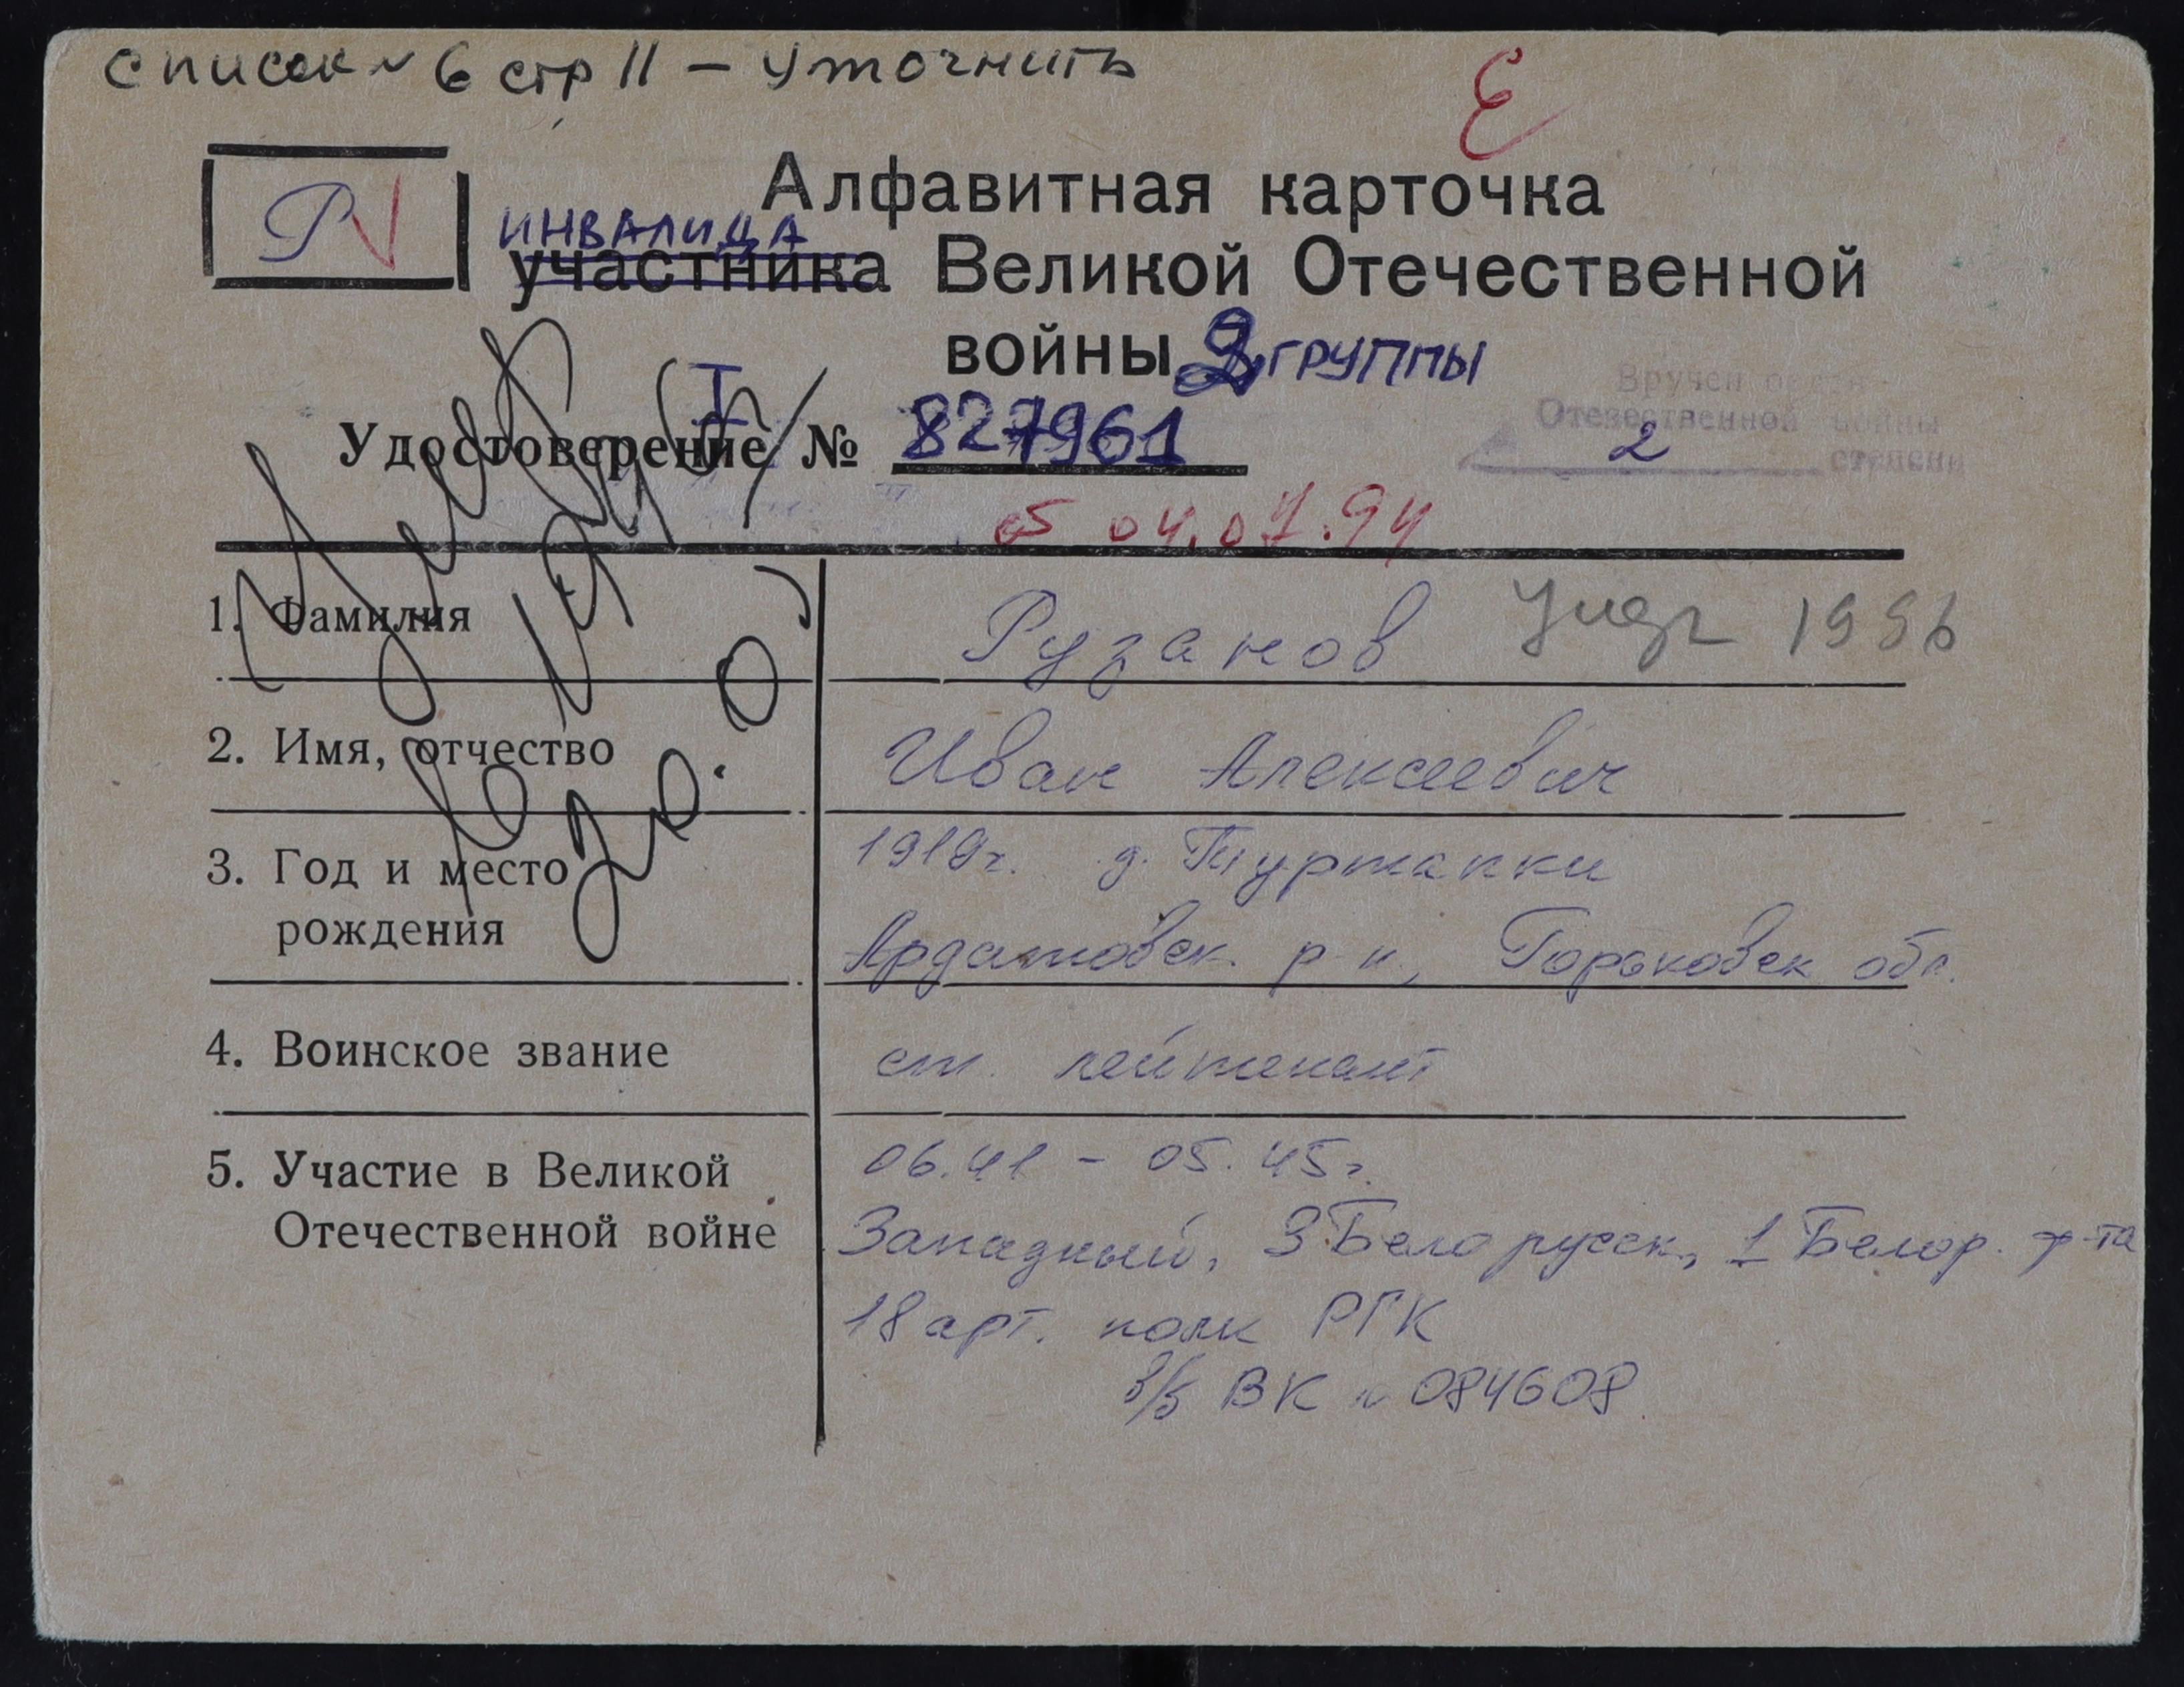 список № 6 стр 11 – уточнить
Е
Р
Алфавитная карточка
инвалида
участника Великой Отечественной
войны 2 группы
I
Удостоверение № 827961
Вручен орден
Отечественной войны
2 степени
от 04.07.94
1. Фамилия
Рузанов
1996
2. Имя, отчество
Иван Алексеевич
3. Год и место
рождения
1919г. д. Туртапки
Ардатовск. р-н, Горьковск обл.
4. Воинское звание
ст. лейтенант
5. Участие в Великой
Отечественной войне
06.41 – 05.45г.
Западный, 3 Белорусск., 1 Белор. ф-та
18 арт. полк РГК
в/б ВК № 084608